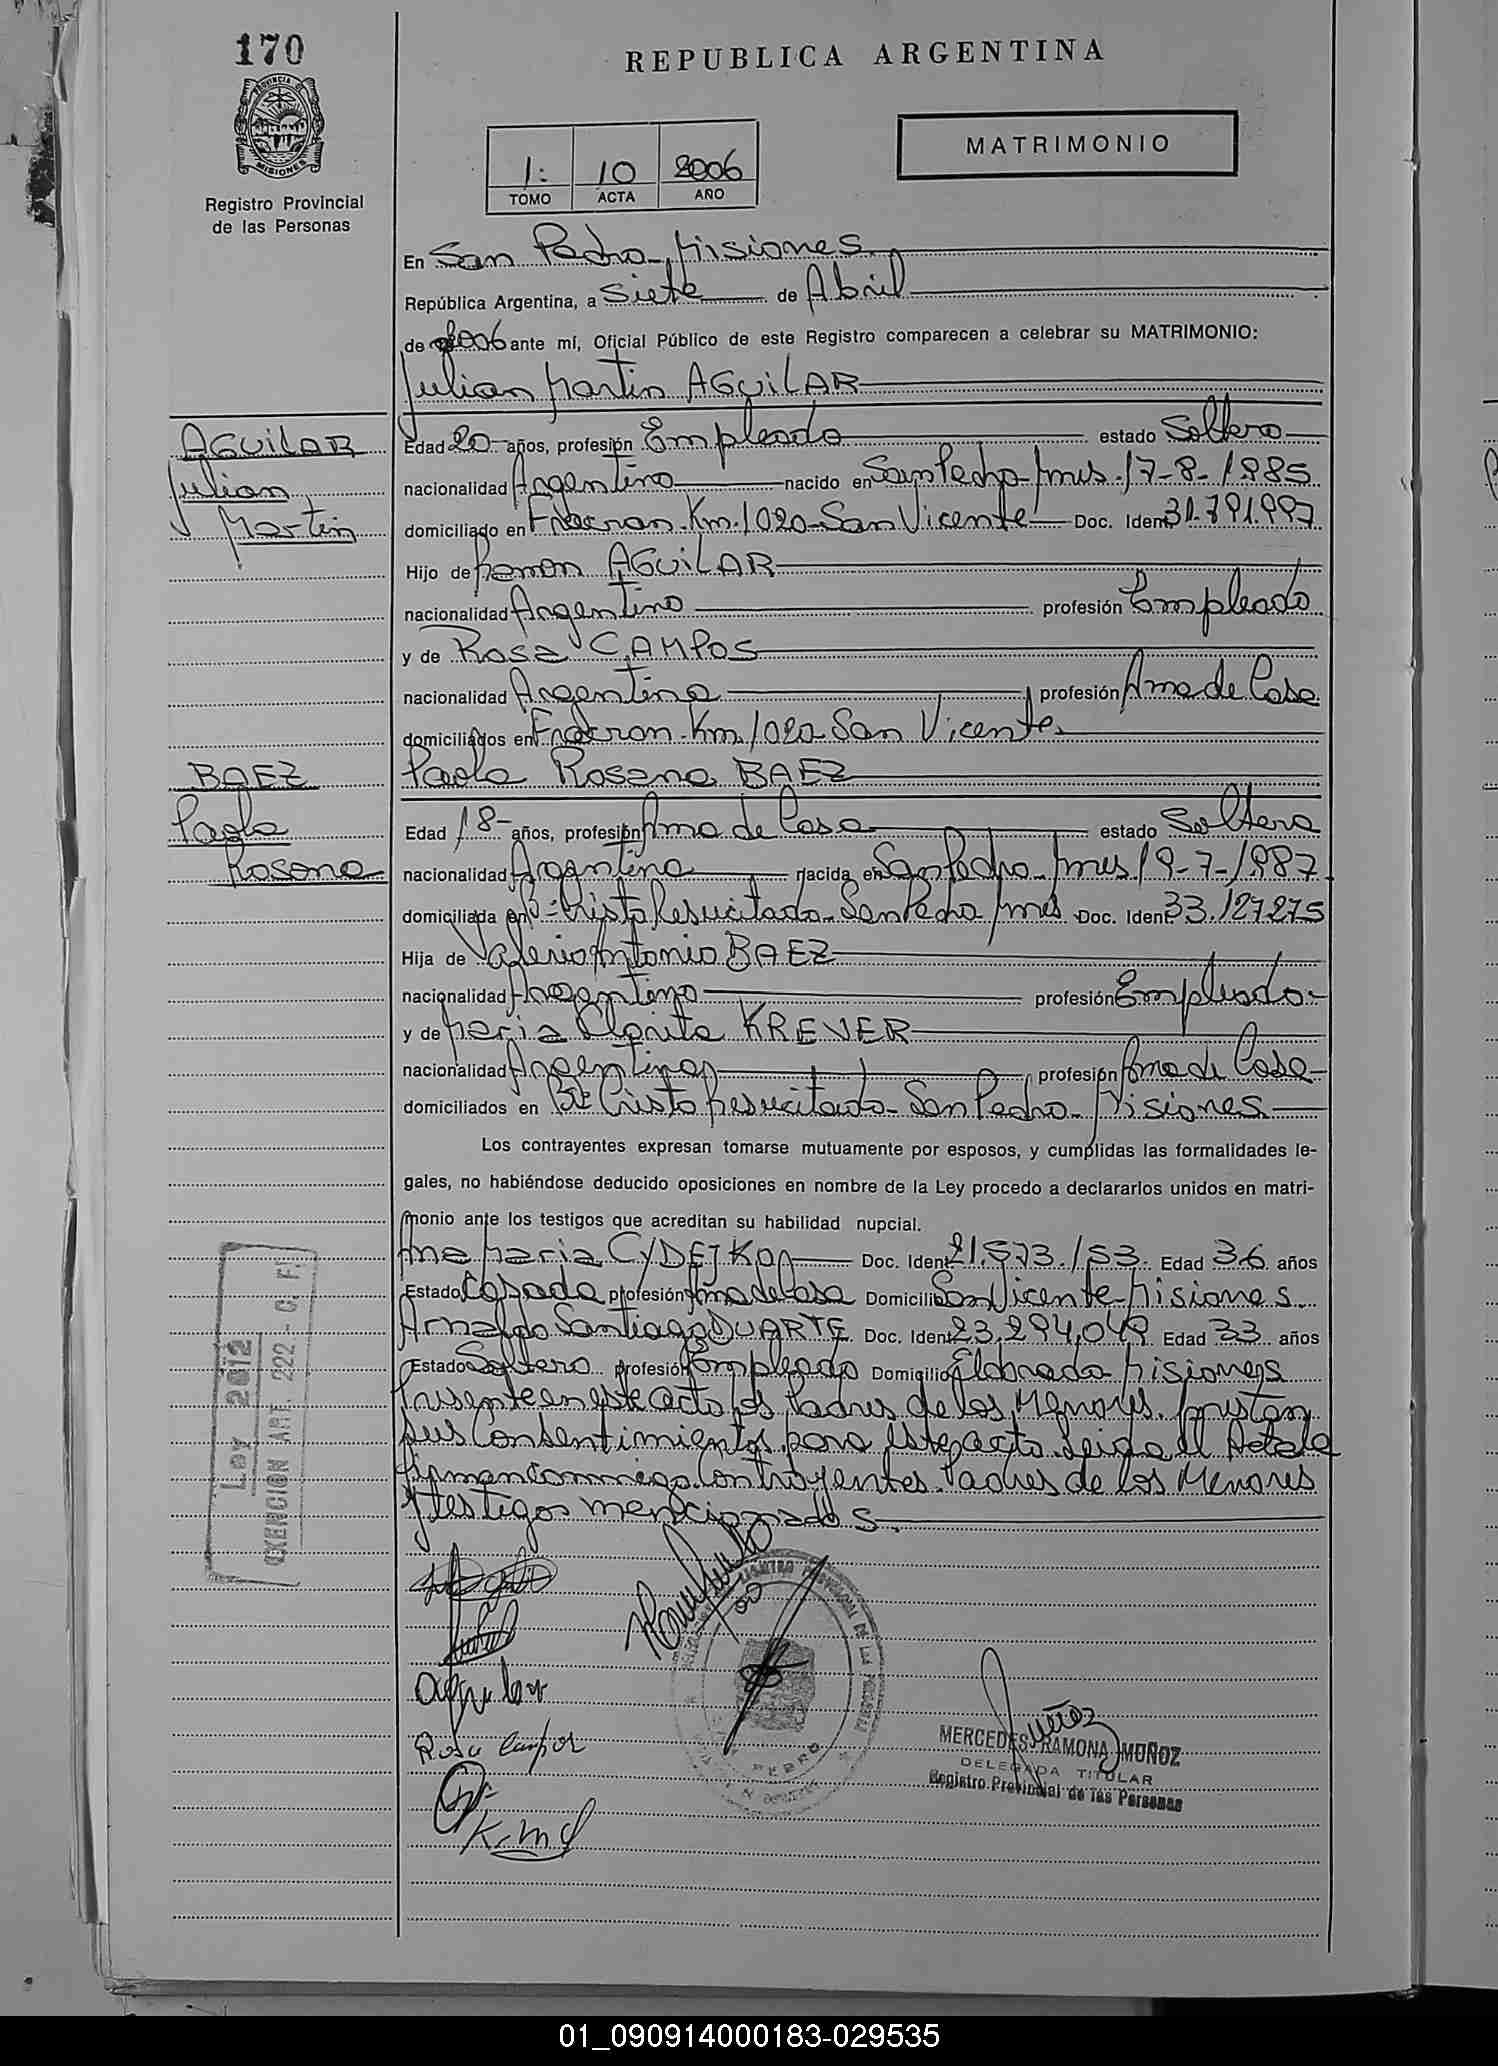 170
REPUBLICA ARGENTINA
MATRIMONIO
PROVINCIA DE
MISIONES
Registro Provincial
de las Personas
1: 10 2006
TOMO ACTA AÑO
En San Pedro Misiones
República Argentina, a Siete de Abril
de 2006 ante mí, Oficial Público de este Registro comparecen a celebrar su MATRIMONIO:
Julian Martin AGUILAR
AGUILAR
Julian
Martin
Edad 20 años, profesión Empleado estado Soltero
nacionalidad Argentino nacido en San Pedro Mnes. 17-8-1985
domiciliado en Fracran Km. 1020 San Vicente Doc. Ident. 31.791.997
Hijo de Ramon AGUILAR
nacionalidad Argentino profesión Empleado
y de Rosa CAMPOS
nacionalidad Argentina profesión Ama de Casa
domiciliados en Fracran Km. 1020 San Vicente
BAEZ
Paola
Rosana
Paola Rosana BAEZ
Edad 18 años, profesión Ama de Casa estado Soltera
nacionalidad Argentina nacida en San Pedro Mnes 19-7-1987
domiciliada en Bº Cristo Resucitado San Pedro Mnes Doc. Ident. 33.127.275
Hija de Valerio Antonio BAEZ
nacionalidad Argentino profesión Empleado
y de Maria Clorita KREVER
nacionalidad Argentina profesión Ama de Casa
domiciliados en Bº Cristo Resucitado San Pedro Misiones
Los contrayentes expresan tomarse mutuamente por esposos, y cumplidas las formalidades le-
gales, no habiéndose deducido oposiciones en nombre de la Ley procedo a declararlos unidos en matri-
monio ante los testigos que acreditan su habilidad nupcial.
Ana Maria CYDEJKO Doc. Ident. 21.573.153 Edad 36 años
Estado Casada profesión Ama de Casa Domicilio San Vicente Misiones
Arnaldo Santiago DUARTE Doc. Ident. 23.294.049 Edad 33 años
Estado Soltero profesión Empleado Domicilio Eldorado Misiones
Presente en este acto los Padres de los Menores prestan
sus Consentimientos para este acto. Leida el Acta la
firman conmigo Contrayentes Padres de los Menores
y testigos mencionados.
Ley 2012
EXENCION ART. 222 - C. F.
Aguilar
Rosa Campos
K.M.C
REGISTRO PROVINCIAL DE LAS PERSONAS
PEDRO
Muñoz
MERCEDES RAMONA MUÑOZ
DELEGADA TITULAR
Registro Provincial de las Personas
01_090914000183-029535